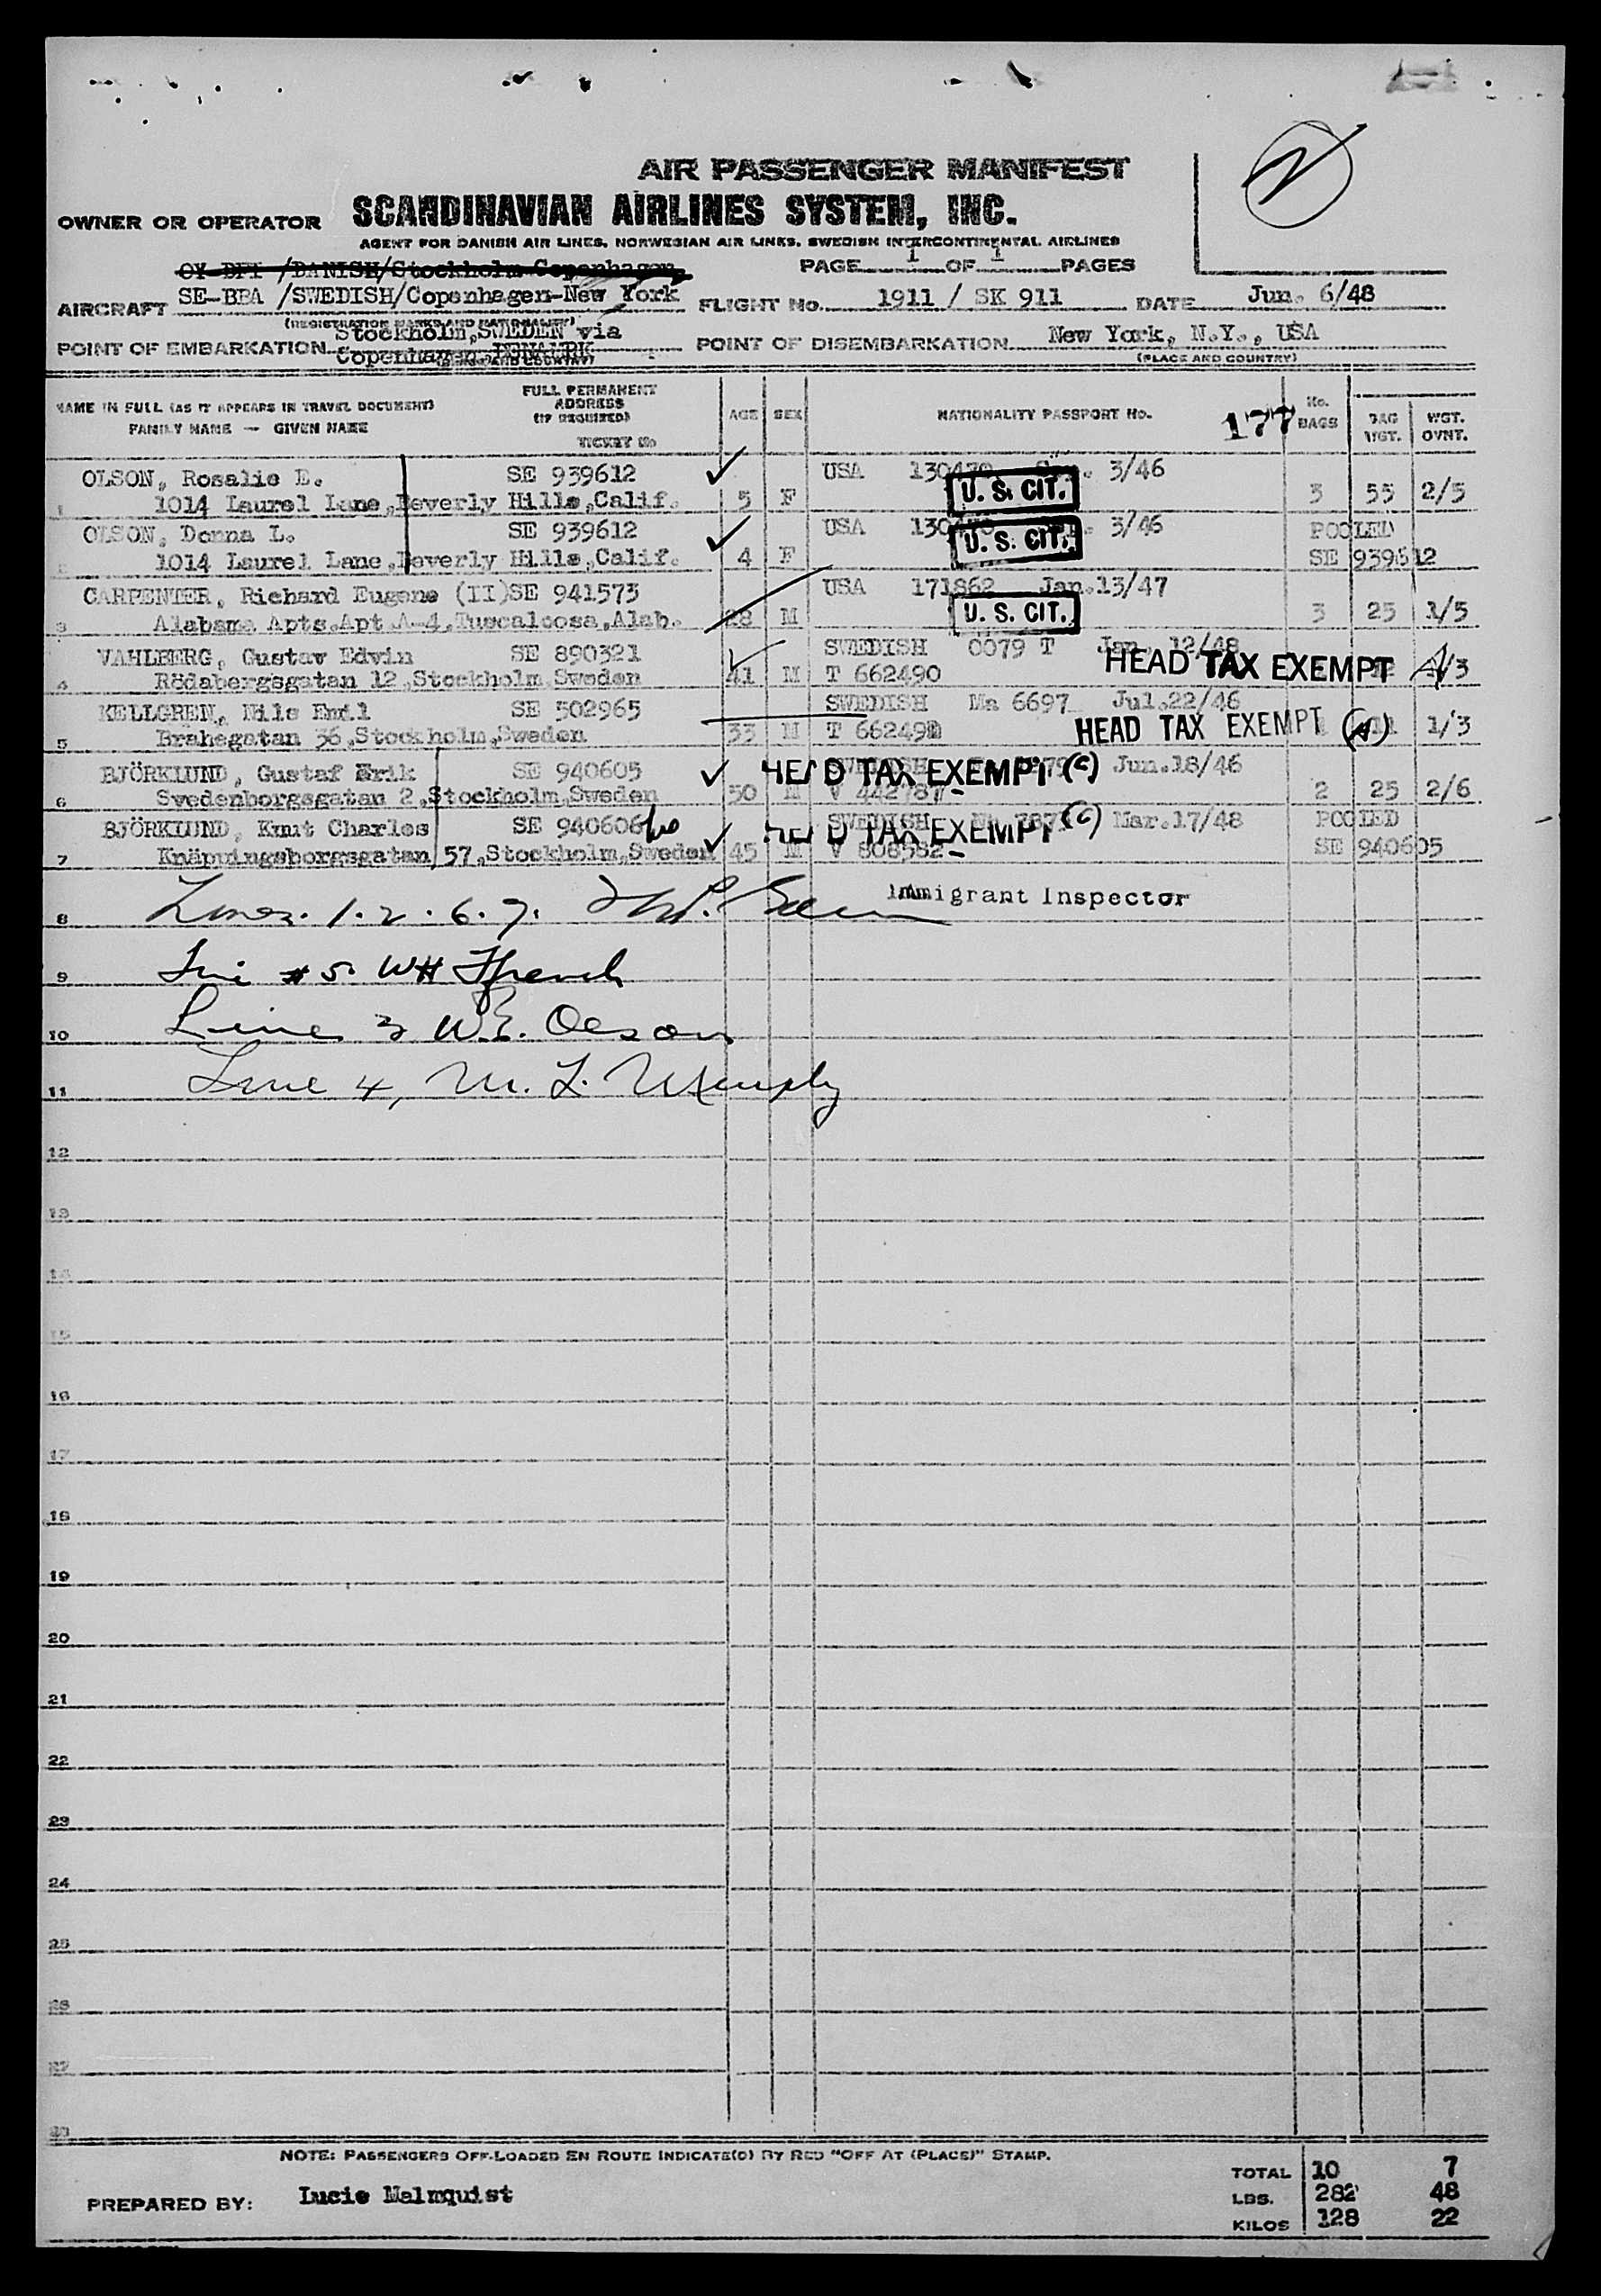 AIR PASSENGER MANIFEST
OWNER OR OPERATOR SCANDINAVIAN AIRLINES SYSTEM, INC.
AGENT FOR DANISH AIR LINES, NORWEGIAN AIR LINES, SWEDISH INTERCONTINENTAL AIRLINES
/DANISH/Stockholm-Copenhagen
PAGE 1 OF 1 PAGES
AIRCRAFT SE-BBA /SWEDISH/Copenhagen-New York FLIGHT No. 1911 / SK 911 DATE Jun. 6/48
(REGISTRATION MARKS AND NATIONALITY)
POINT OF EMBARKATION Stockholm, SWEDEN via Copenhagen, DENMARK
POINT OF DISEMBARKATION New York, N.Y., USA
(PLACE AND COUNTRY) (PLACE AND COUNTRY)
NAME IN FULL (AS IT APPEARS IN TRAVEL DOCUMENT)
FAMILY NAME — GIVEN NAME
FULL PERMANENT ADDRESS (IF REQUIRED)
TICKET No
AGE SEX NATIONALITY PASSPORT No. 177 No. BAGS BAG WGT. WGT. OVNT.
OLSON, Rosalie E. SE 939612 USA 3/46
U. S. CIT.
1 1014 Laurel Lane, Beverly Hills, Calif. 5 F 3 55 2/5
OLSON, Donna L. SE 939612 USA 3/46 POOLED
U. S. CIT.
2 1014 Laurel Lane, Beverly Hills, Calif. 4 F SE 939612
CARPENTER, Richard Eugene (II) SE 941573 USA 171862 Jan.13/47
U. S. CIT.
3 Alabama Apts. Apt A-4, Tuscaloosa, Alab. 28 M 3 25 1/5
VAHLBERG, Gustav Edvin SE 890321 SWEDISH 0079 T Jan. 12/48
HEAD TAX EXEMPT
4 Rödabergsgatan 12, Stockholm, Sweden 41 M T 662490 /3
KELLGREN, Nils Emil SE 502965 SWEDISH Ma 6697 Jul.22/46
HEAD TAX EXEMPT (A)
5 Brahegatan 36, Stockholm, Sweden 33 M T 66249 1/3
BJÖRKLUND, Gustaf Erik SE 940605 Jun.18/46
HEAD TAX EXEMPT (c)
6 Svedenborgsgatan 2, Stockholm, Sweden 50 M V 442787 2 25 2/6
BJÖRKLUND, Knut Charles SE 940606 SWEDISH Mar.17/48 POOLED
HEAD TAX EXEMPT (c)
7 Knäppingsborgsgatan 57, Stockholm, Sweden 45 M V 808582 SE 940605
8 Lines. 1. 2. 6. 7. Immigrant Inspector
9 Line #5. WH French
10 Line 3 W.E. Olson
11 Line 4, M. L. Murphy
12
13
14
15
16
17
18
19
20
21
22
23
24
25
26
27
28
NOTE: PASSENGERS OFF-LOADED EN ROUTE INDICATE(D) BY RED "OFF AT (PLACE)" STAMP.
TOTAL 10 7
PREPARED BY: Lucie Malmquist
LBS. 282 48
KILOS 128 22